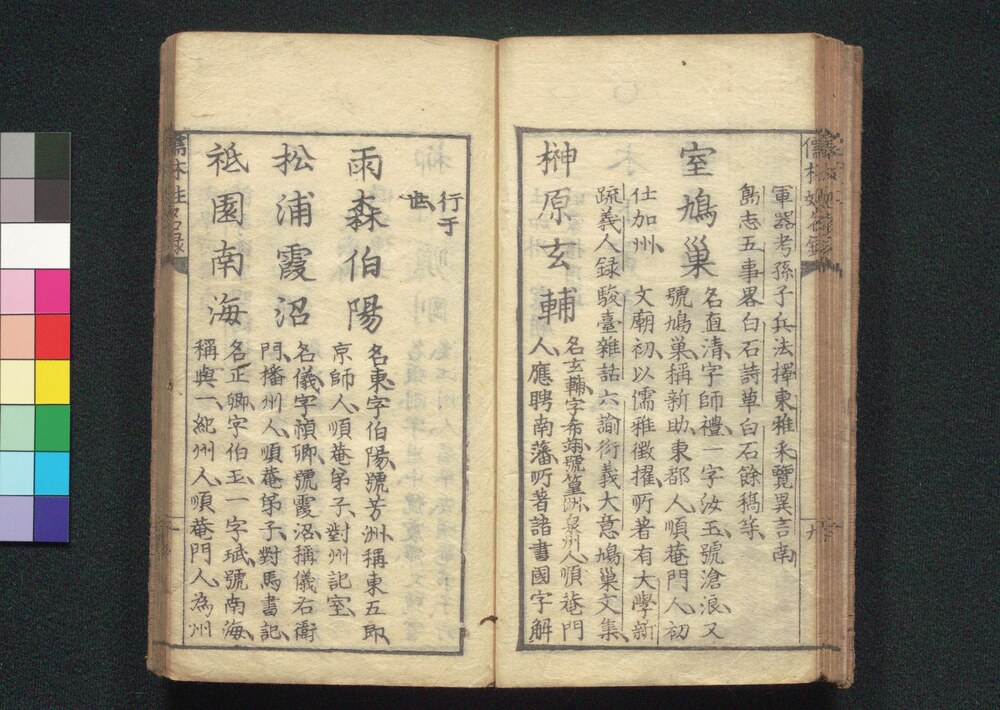 儒林姓名録
九
軍器考孫子兵法擇東雅采覽異言南
島志五事畧白石詩草白石餘稿等
室鳩巢
名直清字師禮一字汝玉號滄浪又
號鳩巢稱新助東都人順菴門人初
仕加州
文廟初以儒雅徵擢所著有大學新
疏義人録駿臺雜話六諭衍義大意鳩巢文集
榊原玄輔
名玄輔字希翊號篁洲泉州人順菴門
人應聘南藩所著諸書國字解
行于
世
雨森伯陽
名東字伯陽號芳洲稱東五郎
京師人順菴弟子對州記室
松浦霞沼
名儀字禎卿號霞沼稱儀右衛
門播州人順菴弟子對馬書記
祗園南海
名正卿字伯玉一字珷號南海
稱與一紀州人順菴門人為州
儒林姓名録